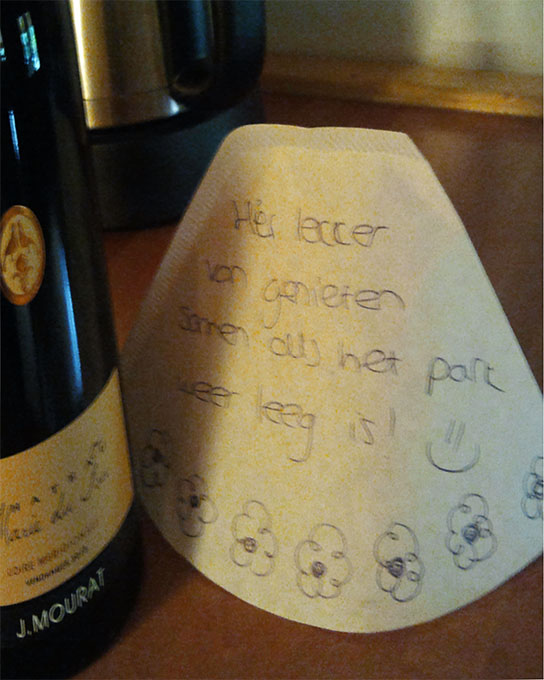 Hier lekker
van genieten
samen als het park
weer leeg is!
J. MOURAT